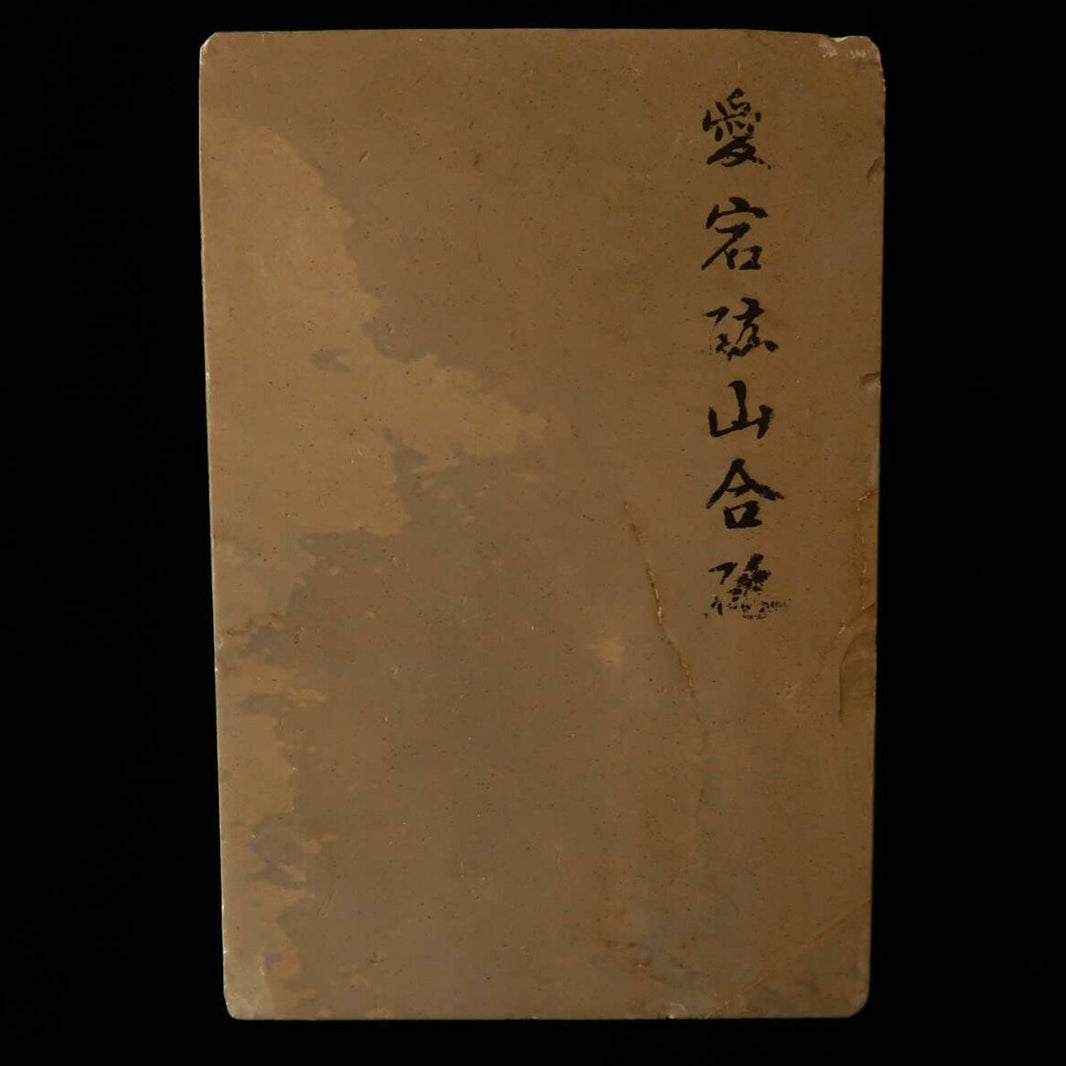 愛宕山合砥